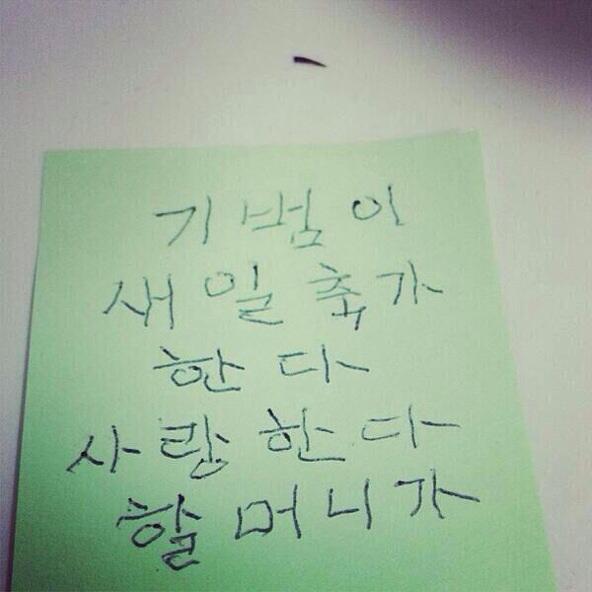 기범이
새일축가
한다
사랑한다
할머니가